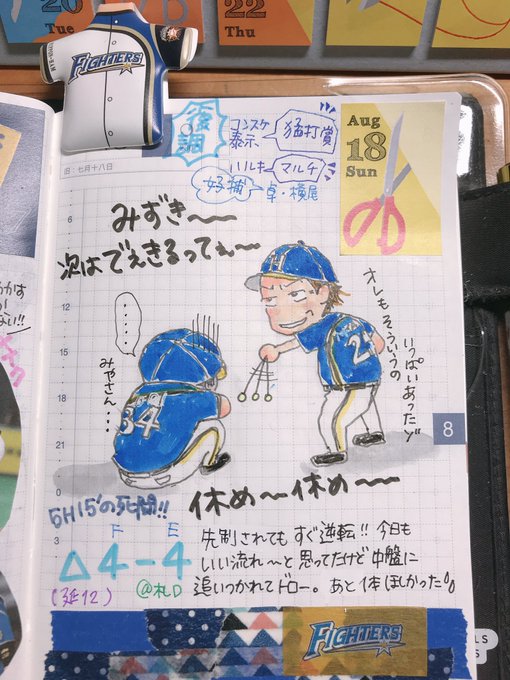 20
Tue
22
Thu
FIGHTERS
好調
コンスケ
泰示
猛打賞
ハルキ
マルチ
好捕
卓・横尾
Aug
18
Sun
旧:七月十八日
みずき〜〜
次はでぇきるってぇ〜
オレもそういうの
いっぱいあったゾ
・・・・・
みやさん・・・
34
H
6
9
12
15
18
21
0
3
8
休め〜休め〜〜
5H15'の死闘!!
F E
△4-4
(延12)
@札D
先制されてもすぐ逆転!! 今日も
いい流れ〜と思ってたけど中盤に
追いつかれてドロー。あと1本ほしかった
FIGHTERS